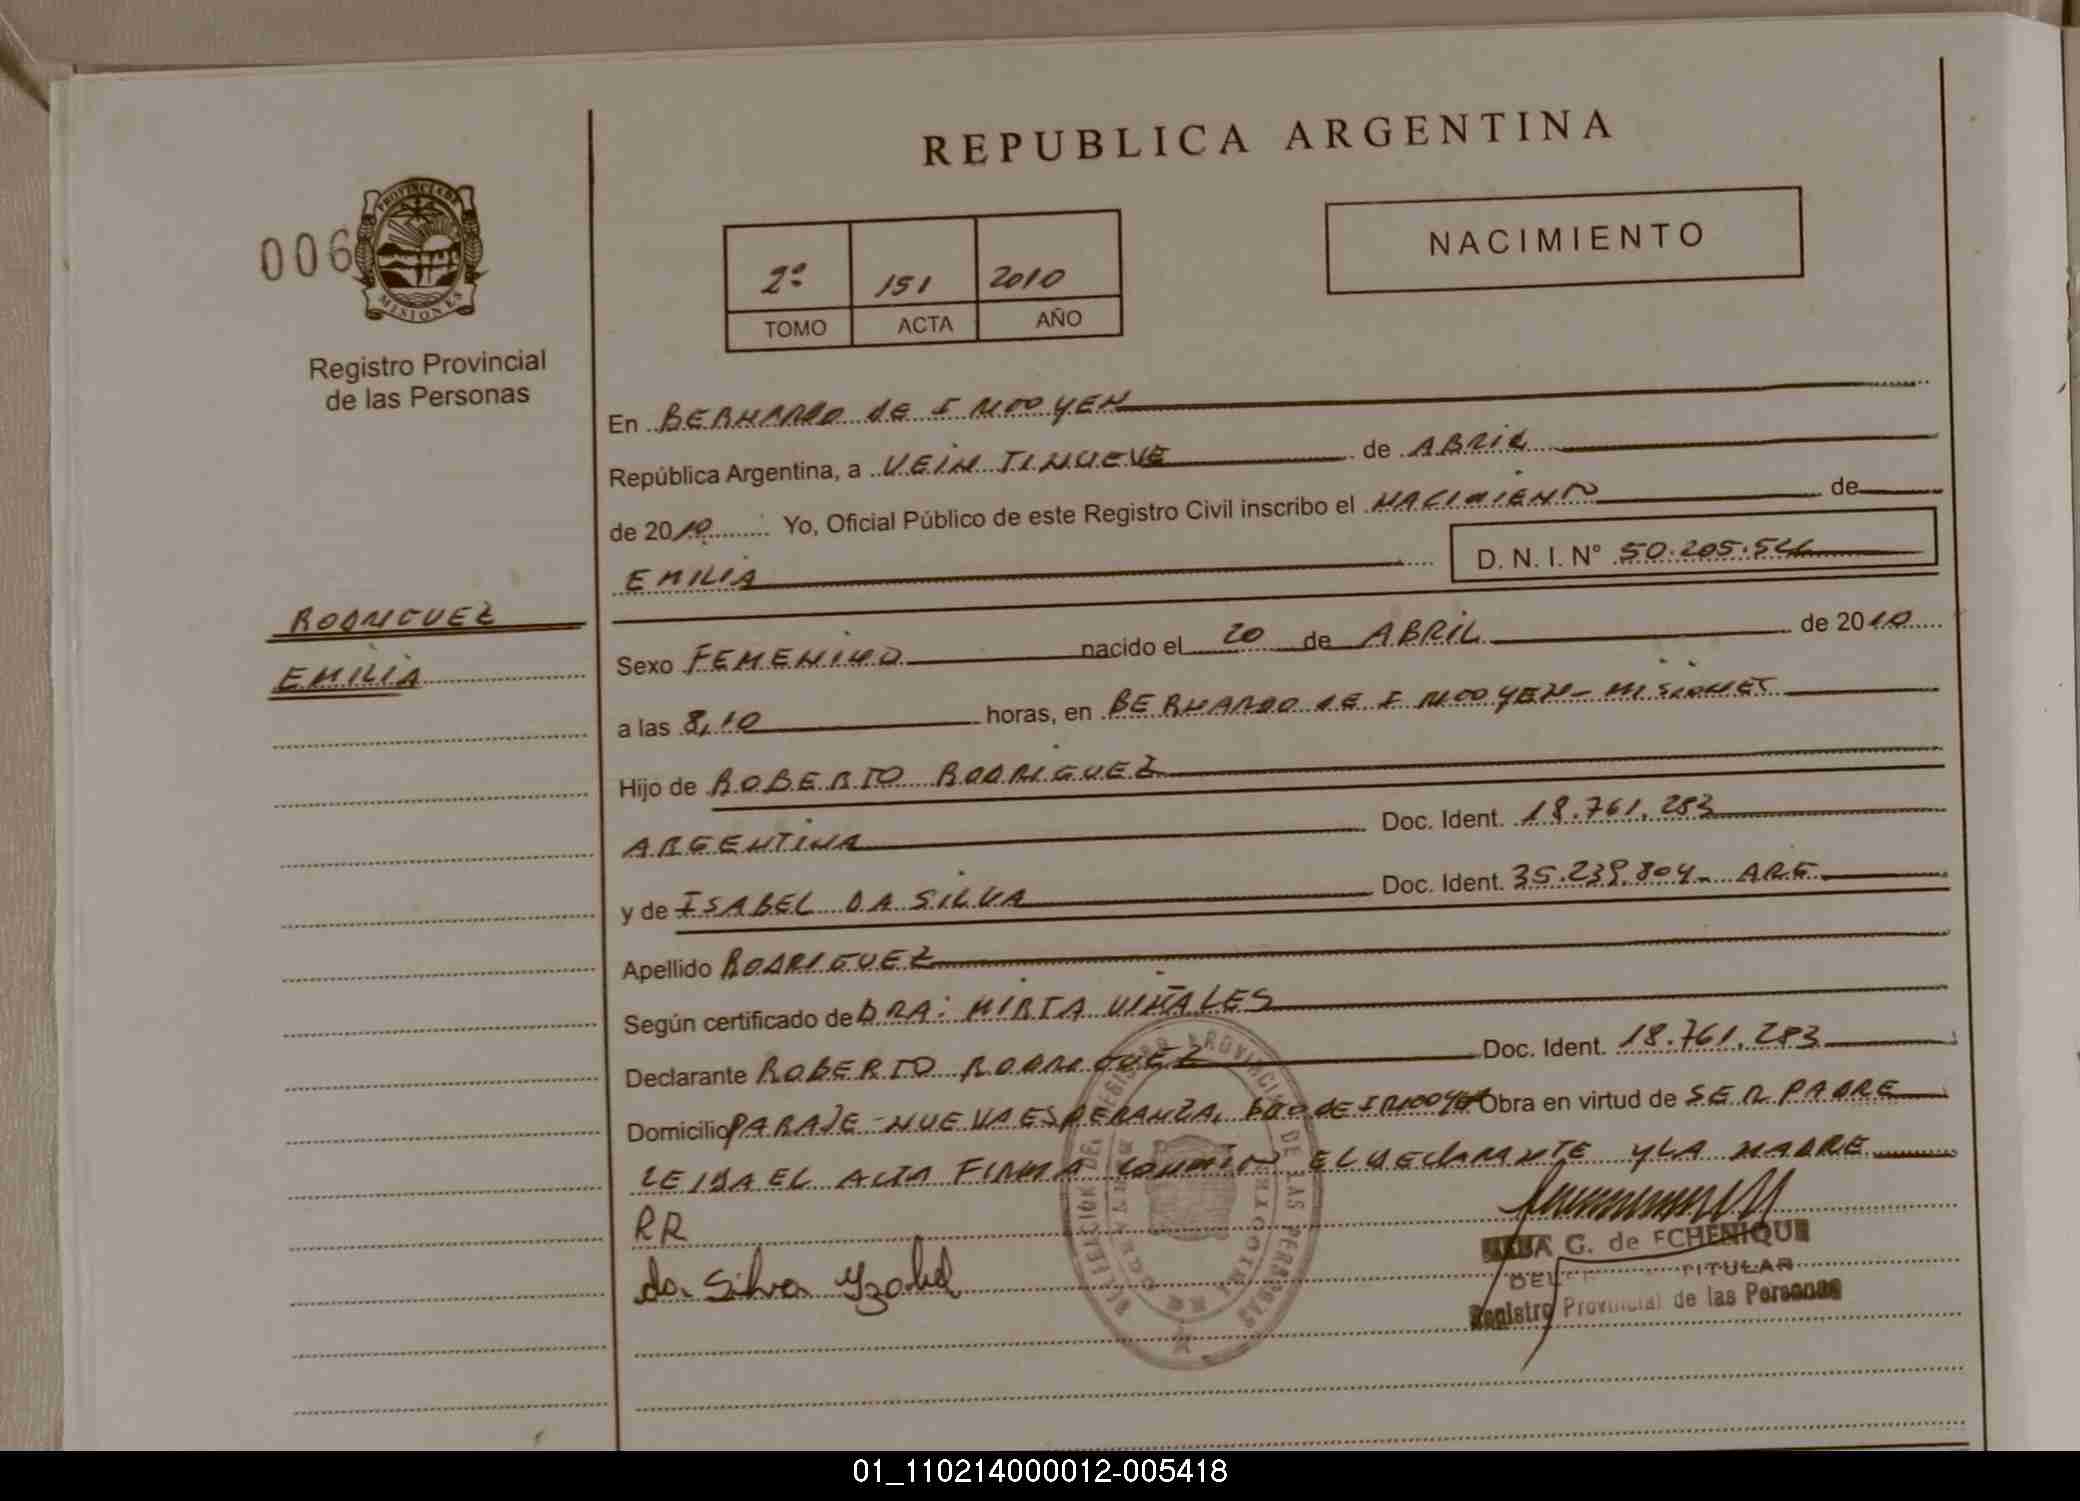 REPUBLICA ARGENTINA
NACIMIENTO
006
PROVINCIA DE
MISIONES
Registro Provincial
de las Personas
2º 151 2010
TOMO ACTA AÑO
En BERNARDO DE IRIGOYEN
República Argentina, a VEINTINUEVE de ABRIL
de 2010 Yo, Oficial Público de este Registro Civil inscribo el NACIMIENTO de
EMILIA D. N. I. N° 50.205.5
RODRIGUEZ
EMILIA
Sexo FEMENINO nacido el 20 de ABRIL de 2010
a las 8,10 horas, en BERNARDO DE IRIGOYEN- MISIONES
Hijo de ROBERTO RODRIGUEZ
ARGENTINA Doc. Ident. 18.761.283
y de ISABEL DA SILVA Doc. Ident. 35.239.804- ARG
Apellido RODRIGUEZ
Según certificado de DRA: MIRTA VIÑALES
Declarante ROBERTO RODRIGUEZ Doc. Ident. 18.761.283
Domicilio PARAJE-NUEVA ESPERANZA, BDO DE IRIGOYEN Obra en virtud de SER PADRE
LEIDA EL ACTA FIRMA CONMIGO EL DECLARANTE Y LA MADRE
RR
da Silva Yzabel
G. de ECHENIQUE
TITULAR
Registro Provincial de las Personas
01_110214000012-005418